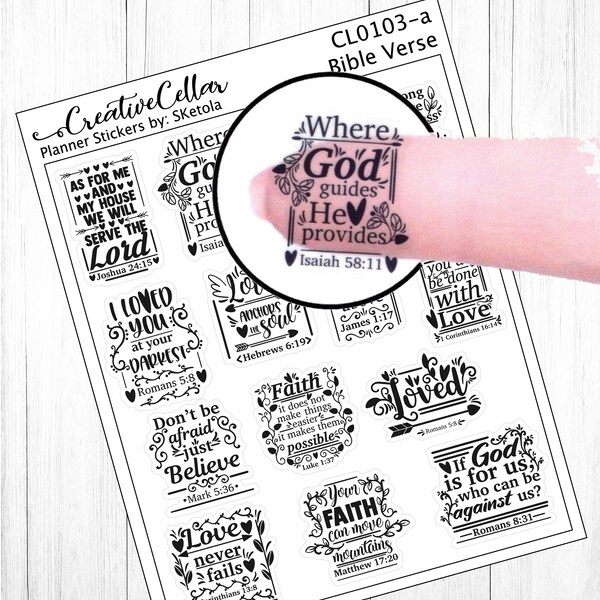 CL0103-a
Bible Verse
CreativeCellar
Planner Stickers by: SKetola
AS FOR ME
AND
MY HOUSE
WE WILL
SERVE THE
Lord
Joshua 24:15
Where
God
Isaiah
Where
God
guides
He
provides
Isaiah 58:11
you
be done
with
Love
1 Corinthians 16:14
I LOVED
YOU
at your
DARKEST
Romans 5:8
ANCHORS
the SOUL
Hebrews 6:19
James 1:17
Don't be
afraid
just
Believe
Mark 5:36
Faith
it does not
make things
easier
it makes them
possible
Luke 1:37
Loved
Romans 5:8
If God
is for us,
who can be
against us?
Romans 8:31
Love
never
fails
Corinthians 13:8
Your
FAITH
can move
mountains
Matthew 17:20